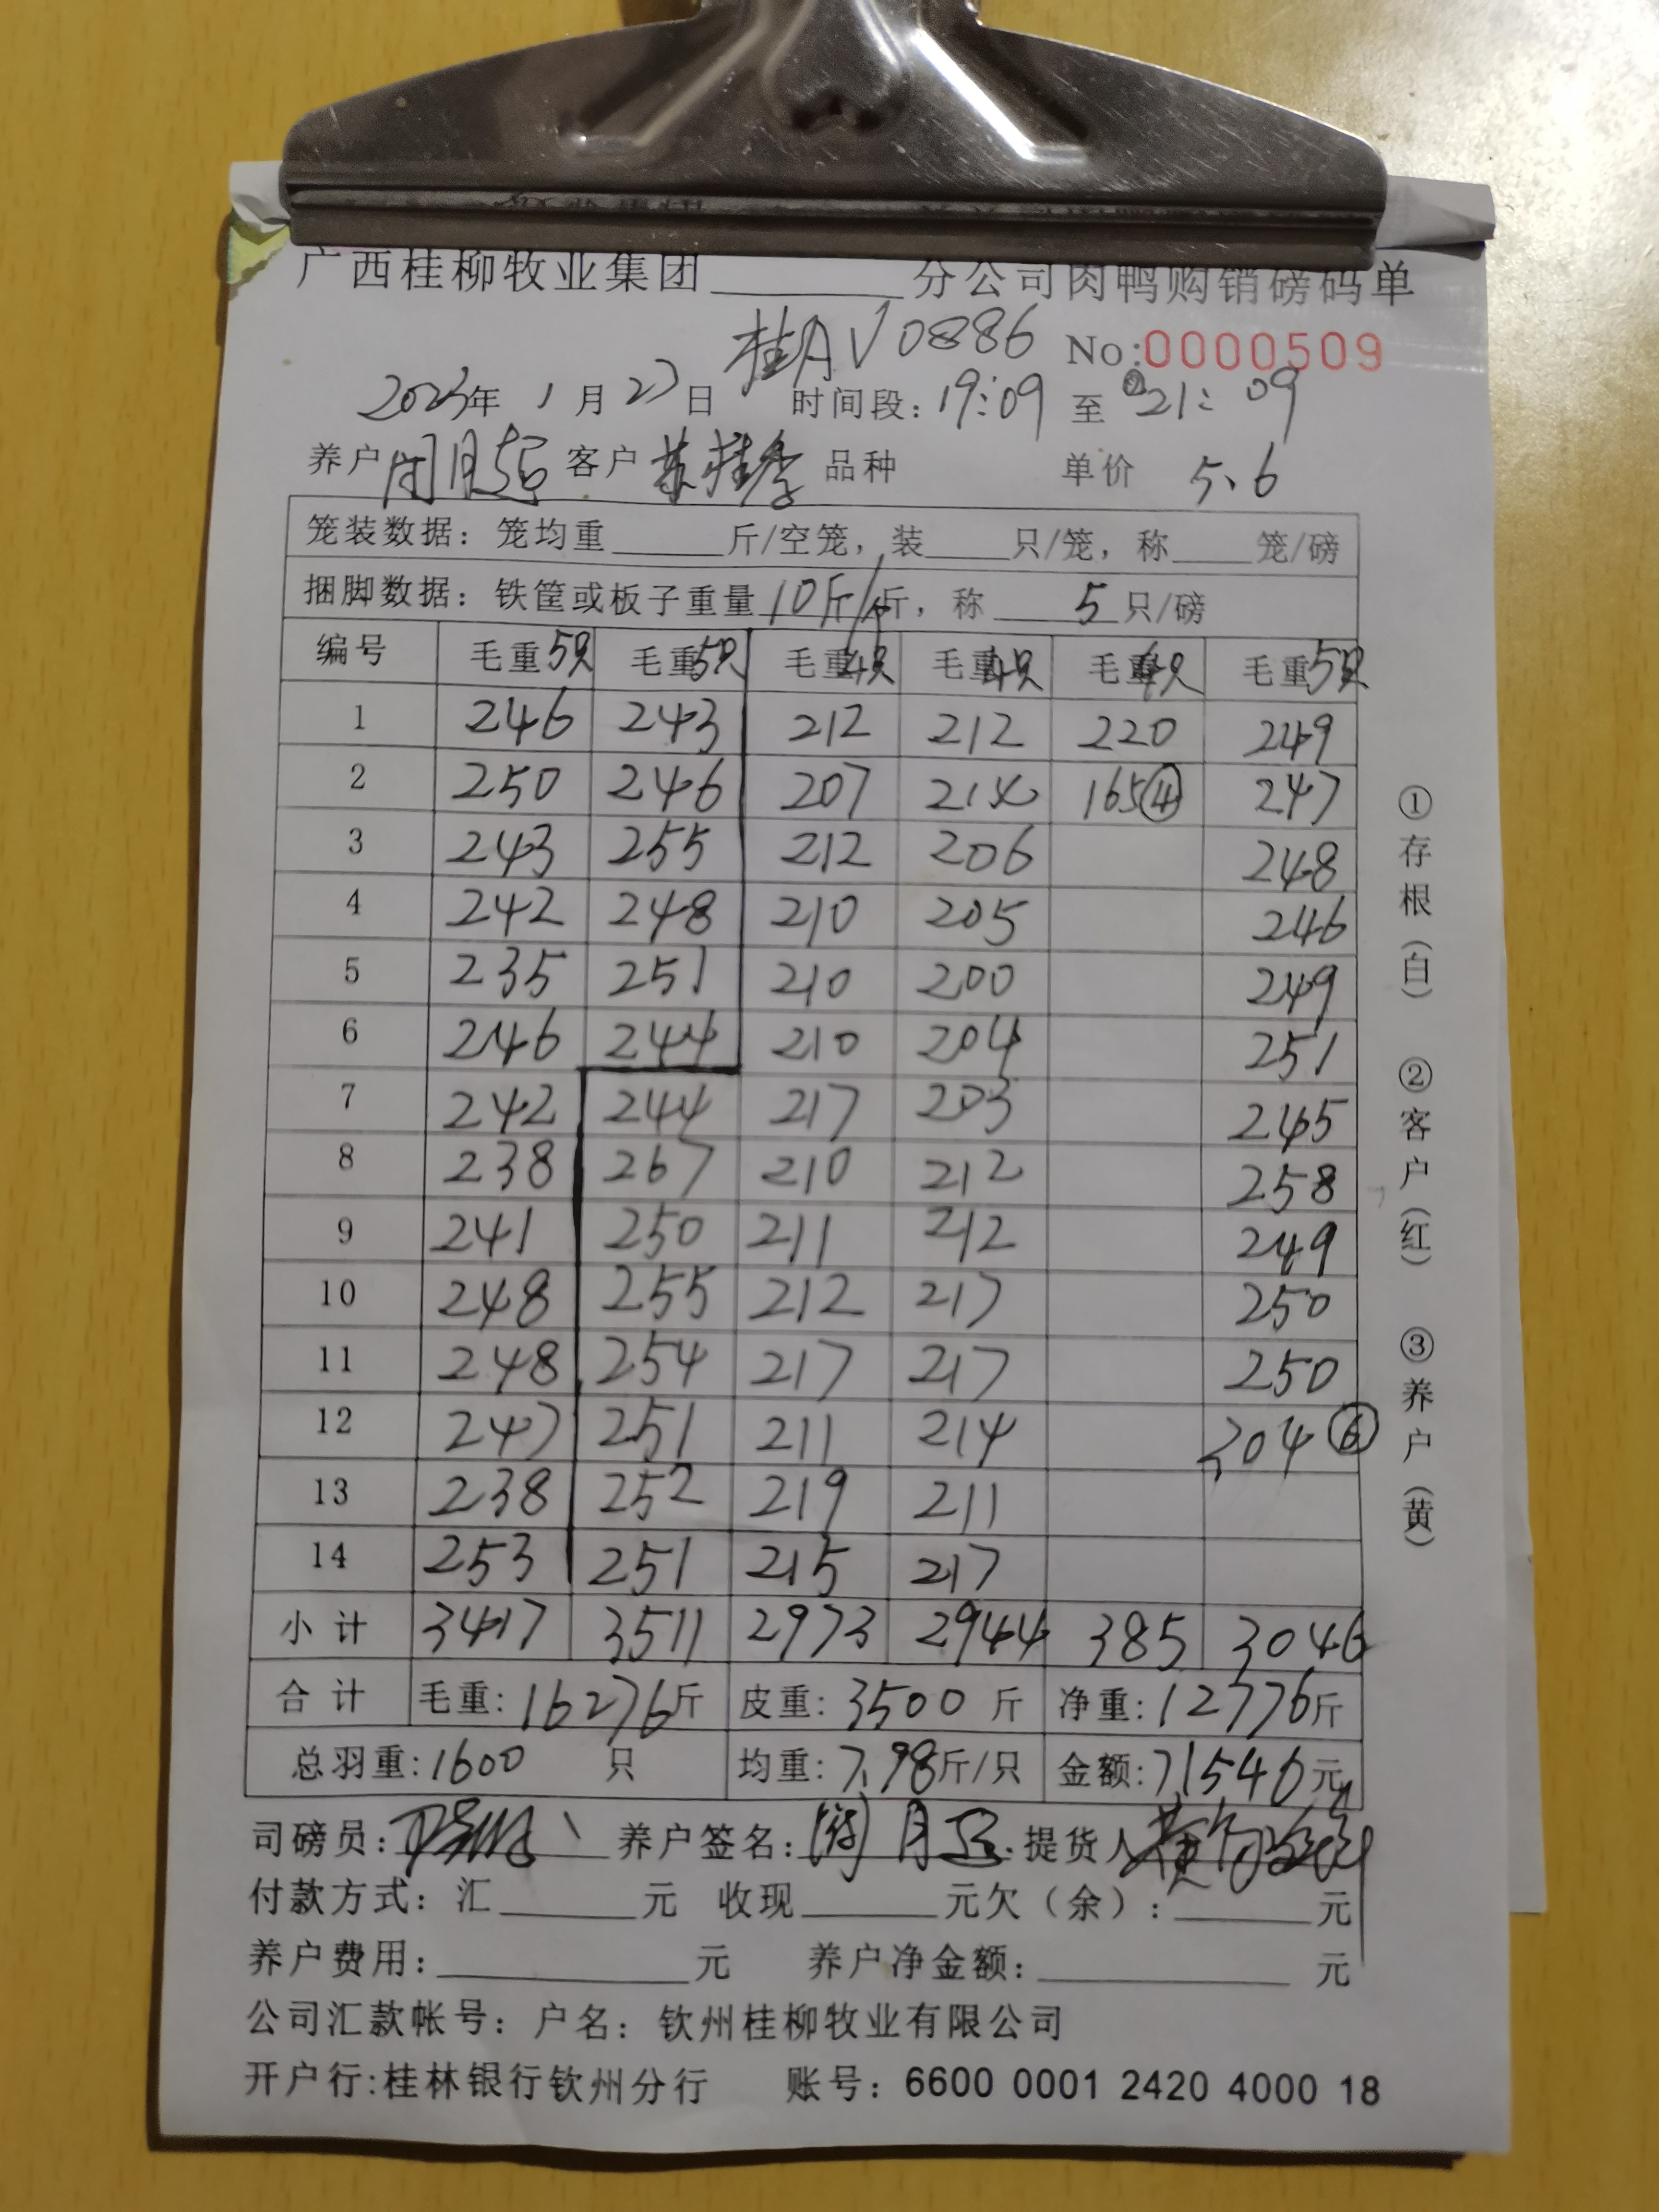 广西桂柳牧业集团______分公司肉鸭购销磅码单
桂AV0886 No:0000509
2023年 1月27日 时间段:19:09 至 21:09
养户 闭月 客户 苏桂 品种 单价 5.6
笼装数据: 笼均重______斤/空笼, 装____只/笼, 称____笼/磅
捆脚数据: 铁筐或板子重量 10斤/个 斤, 称 5 只/磅
编号 毛重5只 毛重5只 毛重4只 毛重4只 毛重4只 毛重5只
1 246 243 212 212 220 249
2 250 246 207 214 165④ 247
3 243 255 212 206 248
4 242 248 210 205 246
5 235 251 210 200 249
6 246 244 210 204 251
7 242 244 217 203 245
8 238 267 210 212 258
9 241 250 211 212 249
10 248 255 212 217 250
11 248 254 217 217 250
12 247 251 211 214 304⑥
13 238 252 219 211
14 253 251 215 217
小计 3417 3511 2973 2944 385 3046
合计 毛重: 16276斤 皮重: 3500斤 净重: 12776斤
总羽重: 1600 只 均重: 7.98斤/只 金额: 71546元
司磅员: 养户签名: 月 提货人
付款方式: 汇______元 收现______元欠(余):______元
养户费用:__________元 养户净金额:__________元
公司汇款帐号: 户名: 钦州桂柳牧业有限公司
开户行:桂林银行钦州分行 账号: 6600 0001 2420 4000 18
①存根(白) ②客户(红) ③养户(黄)